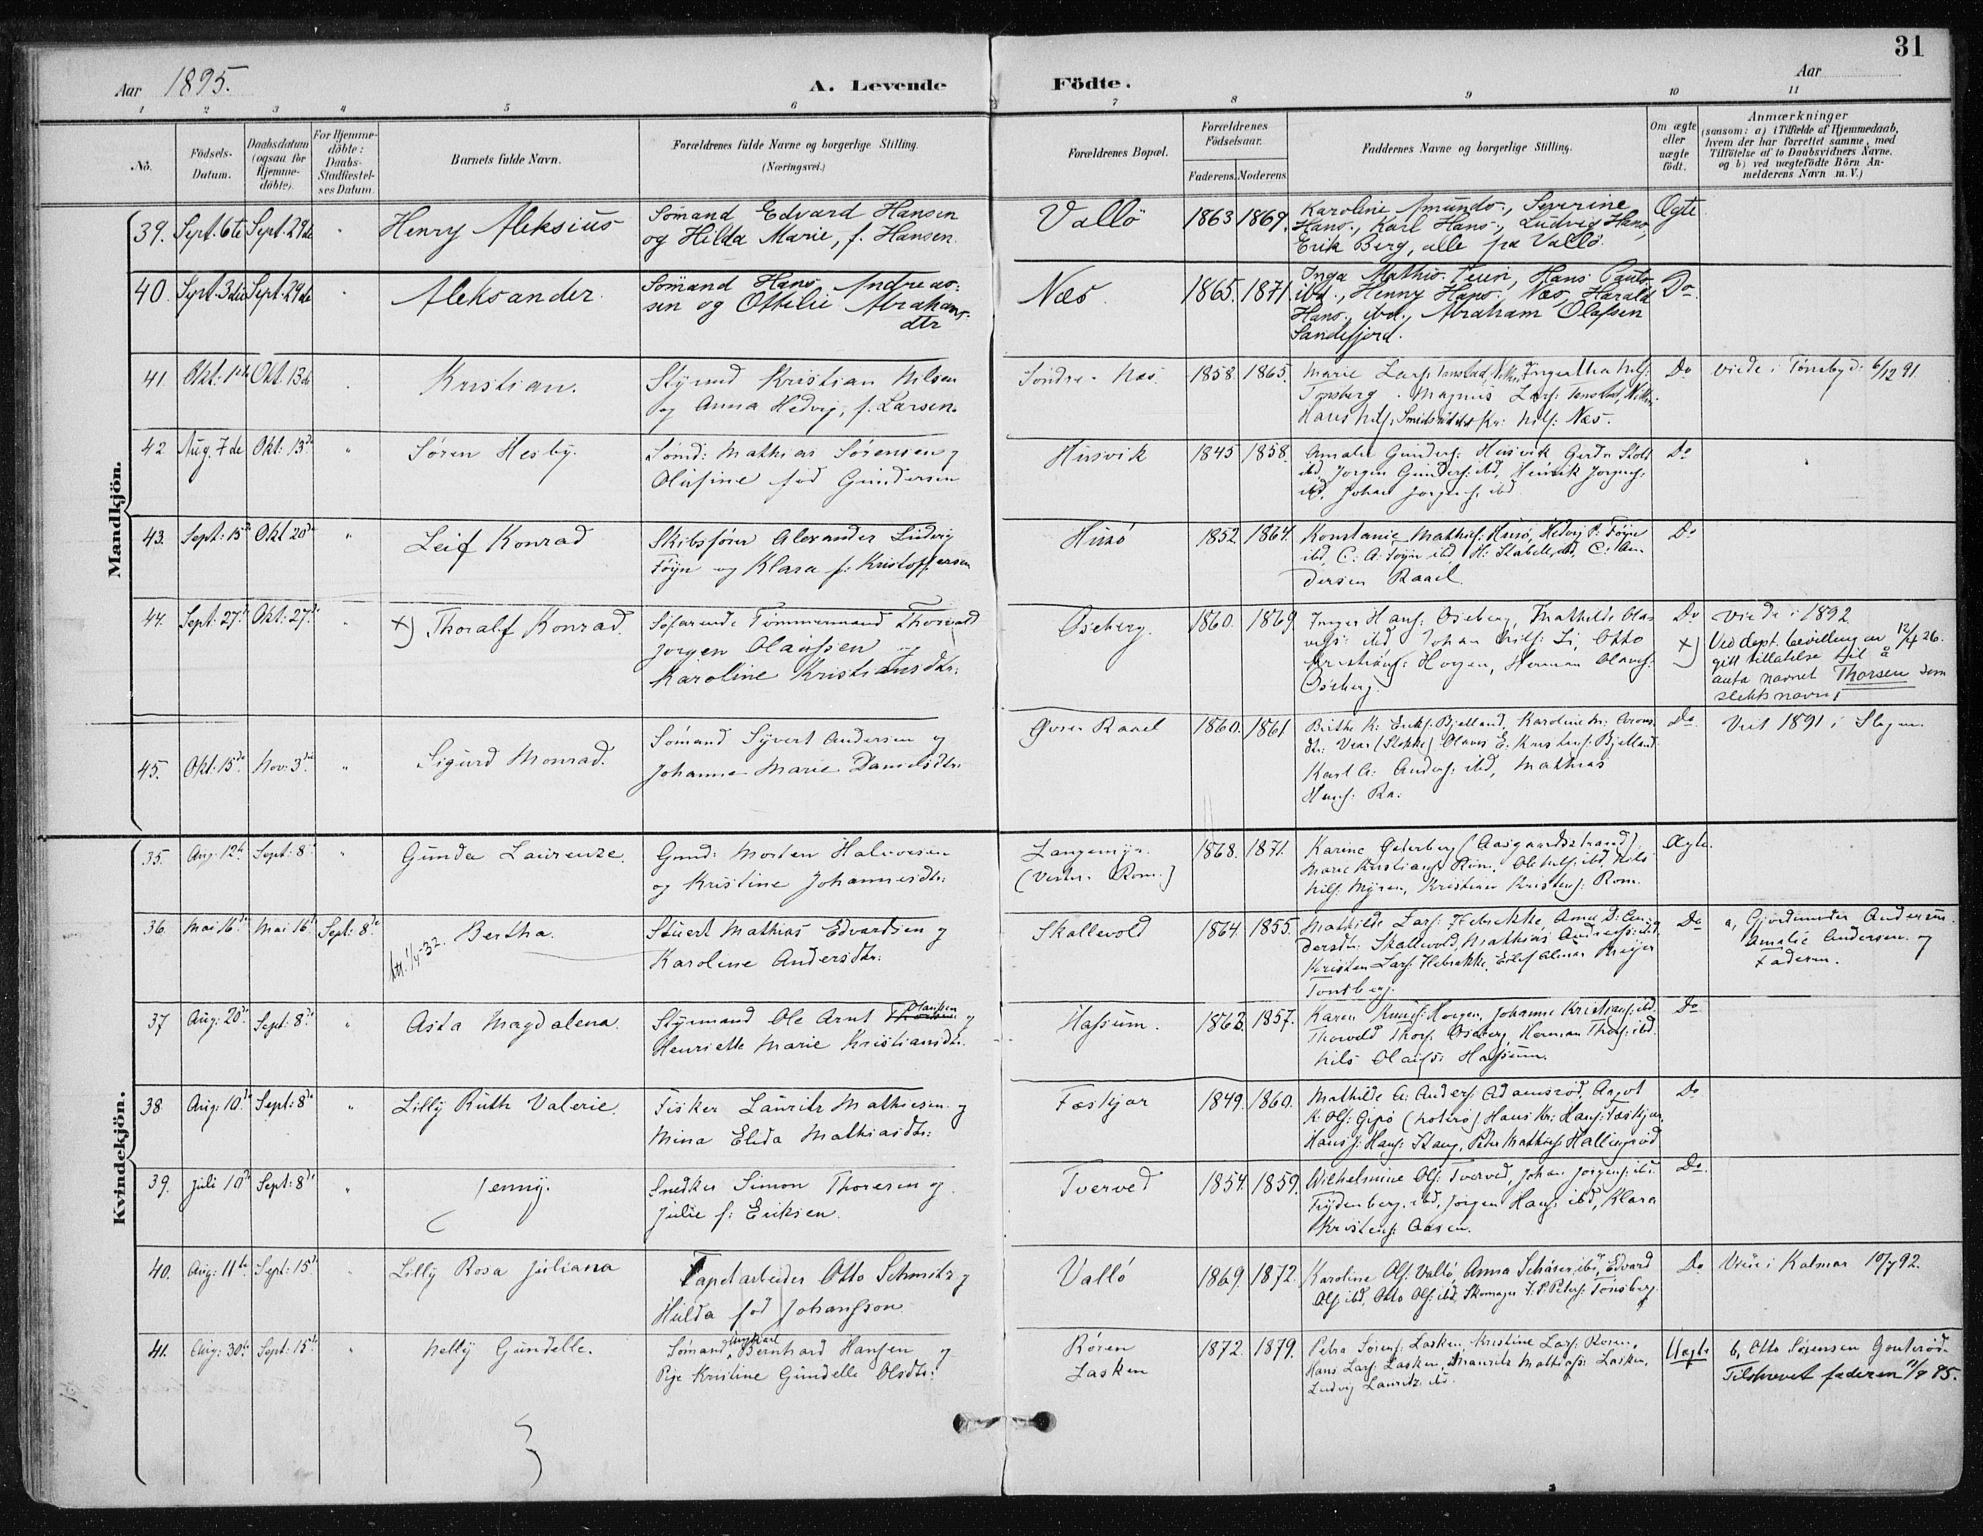 31
Aar 1895.
A. Levende Födte.
Aar
1 2 3 4 5 6 7 8 9 10 11
No.
Födsels-Datum.
Daabsdatum (ogsaa for Hjemme-döbte).
For Hjemme-döbte: Daabs-Stadfæstel-ses Datum.
Barnets fulde Navn.
Forældrenes fulde Navne og borgerlige Stilling. (Næringsvei.)
Forældrenes Bopæl.
Forældrenes Födselsaar.
Faderens. Moderens.
Faddernes Navne og borgerlige Stilling.
Om ægte eller uægte födt.
Anmærkninger
(saasom: a) i Tilfælde af Hjemmedaab, hvem der har forrettet samme, med Tilföielse af to Daabsvidners Navne. og b) ved uægtefödte Börn An-melderens Navn m. V.)
Mandkjön.
39. Sept. 6te Sept. 29de " Henry Aleksius
Sömand Edvard Hansen
og Hilda Marie, f. Hansen.
Vallö 1863 1869.
Karoline Amunds., Severine
Hans., Karl Hans., Ludvig Hans.,
Erik Berg, alle fra Vallö.
Ægte
40. Sept. 3die Sept. 29de " Aleksander.
Sömand Hans Andreas-
sen og Ottilie Abrahams-
dtr
Næs. 1865. 1871
Inga Mathis. , Hans Pauls.
ibd., Henny Hans. Næs, Harald
Hans. ibd., Abraham Olafsen
Sandefjord.
Do.
41. Okt: 1ste Okt. 13de Kristian.
Styrmd Kristian Nilsen
og Anna Hedvig, f. Larsen.
Söndre Næs. 1858. 1865.
Marie Lars: Tanstad, Ingertha Nils:
Tönsberg. Magnus Lars: Tanstad,
Hans Nils: Kr: Nils: Næs.
Do viede i Tønsbg d: 6/12 91.
42 Aug. 7de Okt: 13de " Søren Hesby.
Sömd: Mathias Sörensen og
Olufine fød Gundersen
Husvik 1845 1858.
Amalie Gunders: Husvik Gerda
ibd, Jorgen Gunders: ibd, Henrik Jorgens:
ibd, Johan Jorgens: ibd
Do
43. Sept: 15de Okt 20de " Leif Konrad
Skibsfører Alexander Ludvig
Føyn og Klara f: Kristoffersen
Husø 1852 1864.
Konstanse Mathis: Husø, Hedvig P. Føyn
ibd, C: A: Føyn ibd, H: Stabell, ibd, C: An
dersen Raael
Do
44. Sept: 27de Okt: 27de " x) Thoralf Konrad.
Søfarende Tömmermand Thorvald
Jorgen Olaussen og
Karoline Kristiansdtr:
Oseberg. 1860. 1869
Inger Hans: Oseberg, Mathilde Olau
: ibd Johan Nils: Li, Otto
Kristians: Horgen, Herman Olaus:
Oseberg.
Do viede i 1892
x) Ved dept. bevilling av 12/4 26.
gitt tillatelse til å
anta navnet Thorsen som
slektsnavn,
45. Okt: 15de Nov: 3die " Sigurd Monrad.
Sömand Syvert Andersen og
Johanne Marie Danielsdtr:
Øvre Raael 1860. 1861
Birthe K: Eriks: Bjelland, Karoline M:
dtr: Vear (Stokke) Olaves E. Kristens: Bjelland
Karl A: Anders: ibd, Mathias
Hans: Ra:
Do Viet 1891 i Slagen.
Kvindekjön.
35. Aug: 12te Sept: 8de " Gunda Laurenze.
Gmd: Morten Halvorsen
og Kristine Johannesdtr:
Langemyr.
(Vestre Rom.)
1868. 1871.
Karine Østerberg (Aasgaardsstrand),
Marie Kristians: Rom, Ole Nils: ibd, Nils
Nils: Myren, Kristian Kristens: Rom.
Ægte
36. Mai 16de Mai 16de Sept: 8de Bertha.
Att. 1/4-32.
Stuert Mathias Edvardsen og
Karoline Andersdtr:
Skallevold 1864 1855.
Mathilde Lars: Hebrekke, Anne D: An
dersdtr: Skallevold, Mathias Anders: ibd,
Kristen Lars: Hebrekke,
Tonsberg.
Do a, Gjordemoder Andersen.
Amalie Andersen og
Faderen.
37 Aug: 20de Sept: 8de " Asta Magdalena.
Styrmand Ole Arnt Olaussen og
Henriette Marie Kristiansdtr.
Hassum. 1862. 1857.
Karen Knuds: Horgen, Johanne Kristians: ibd.
Thorvald Thors: Oseberg, Herman Thors: ibd.
Nils Olaus: Hassum.
Do
38. Aug: 10de Sept: 8de " Lilly Ruth Valerie.
Fisker Lauritz Mathiesen og
Mina Elida Mathiasdtr:
Fæskjær 1849. 1860.
Mathilde A: Anders: Adamsrød, Aagot
K: Ols: Gipø (Noterø) Hans Kr: Hans: Fæskjær,
Hans J: Hans: Stang, Peter Mathias: Hallingrød
Do
39. Juli 10de Sept: 8de " Jenny.
Snedker Simon Thoresen og
Julie f: Eriksen.
Tverved 1854. 1859.
Wilhelmine Ols: Tverved, Johan Jorgens: ibd.
Frydenberg. ibd, Jorgen Hans: ibd, Klara
Kristens: Aasen.
Do.
40. Aug: 11te Sept: 15de " Lilly Rosa Juliana
Tapetarbeider Otto Schmitz og
Hulda fød Johansson
Vallö 1869. 1872.
Karoline Ols: Vallö, Anna Schøser ibd, Edvard
Ols: ibd, Otto Ols: ibd, Skomager I. P. Peters: Tonsberg.
Do Viede i Kalmar 10/7 92.
41. Aug: 30te Sept: 15de Nelly Gundelle.
Sömand Bernhard Hansen og
Pige Kristine Gundelle Olsdtr:
Røren
Lasken
1872. 1879.
Petra Sørens: Lasken, Kristine Lars: Roren,
Hans Lars: Lasken, Maurits Mathias: Lasken,
Ludvig Lauritz. ibd.
Uægte b, Otto Sørensen Gonterød.
Tilskrevet faderen 11/9 95.